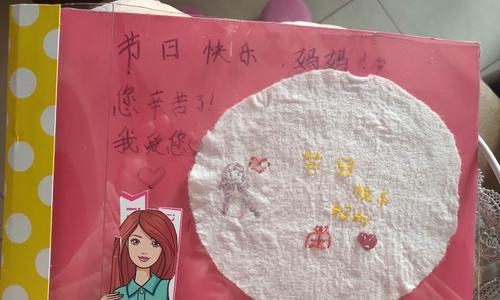 节日快乐,妈妈!
您辛苦了!
我爱您
节日
快乐
妈妈